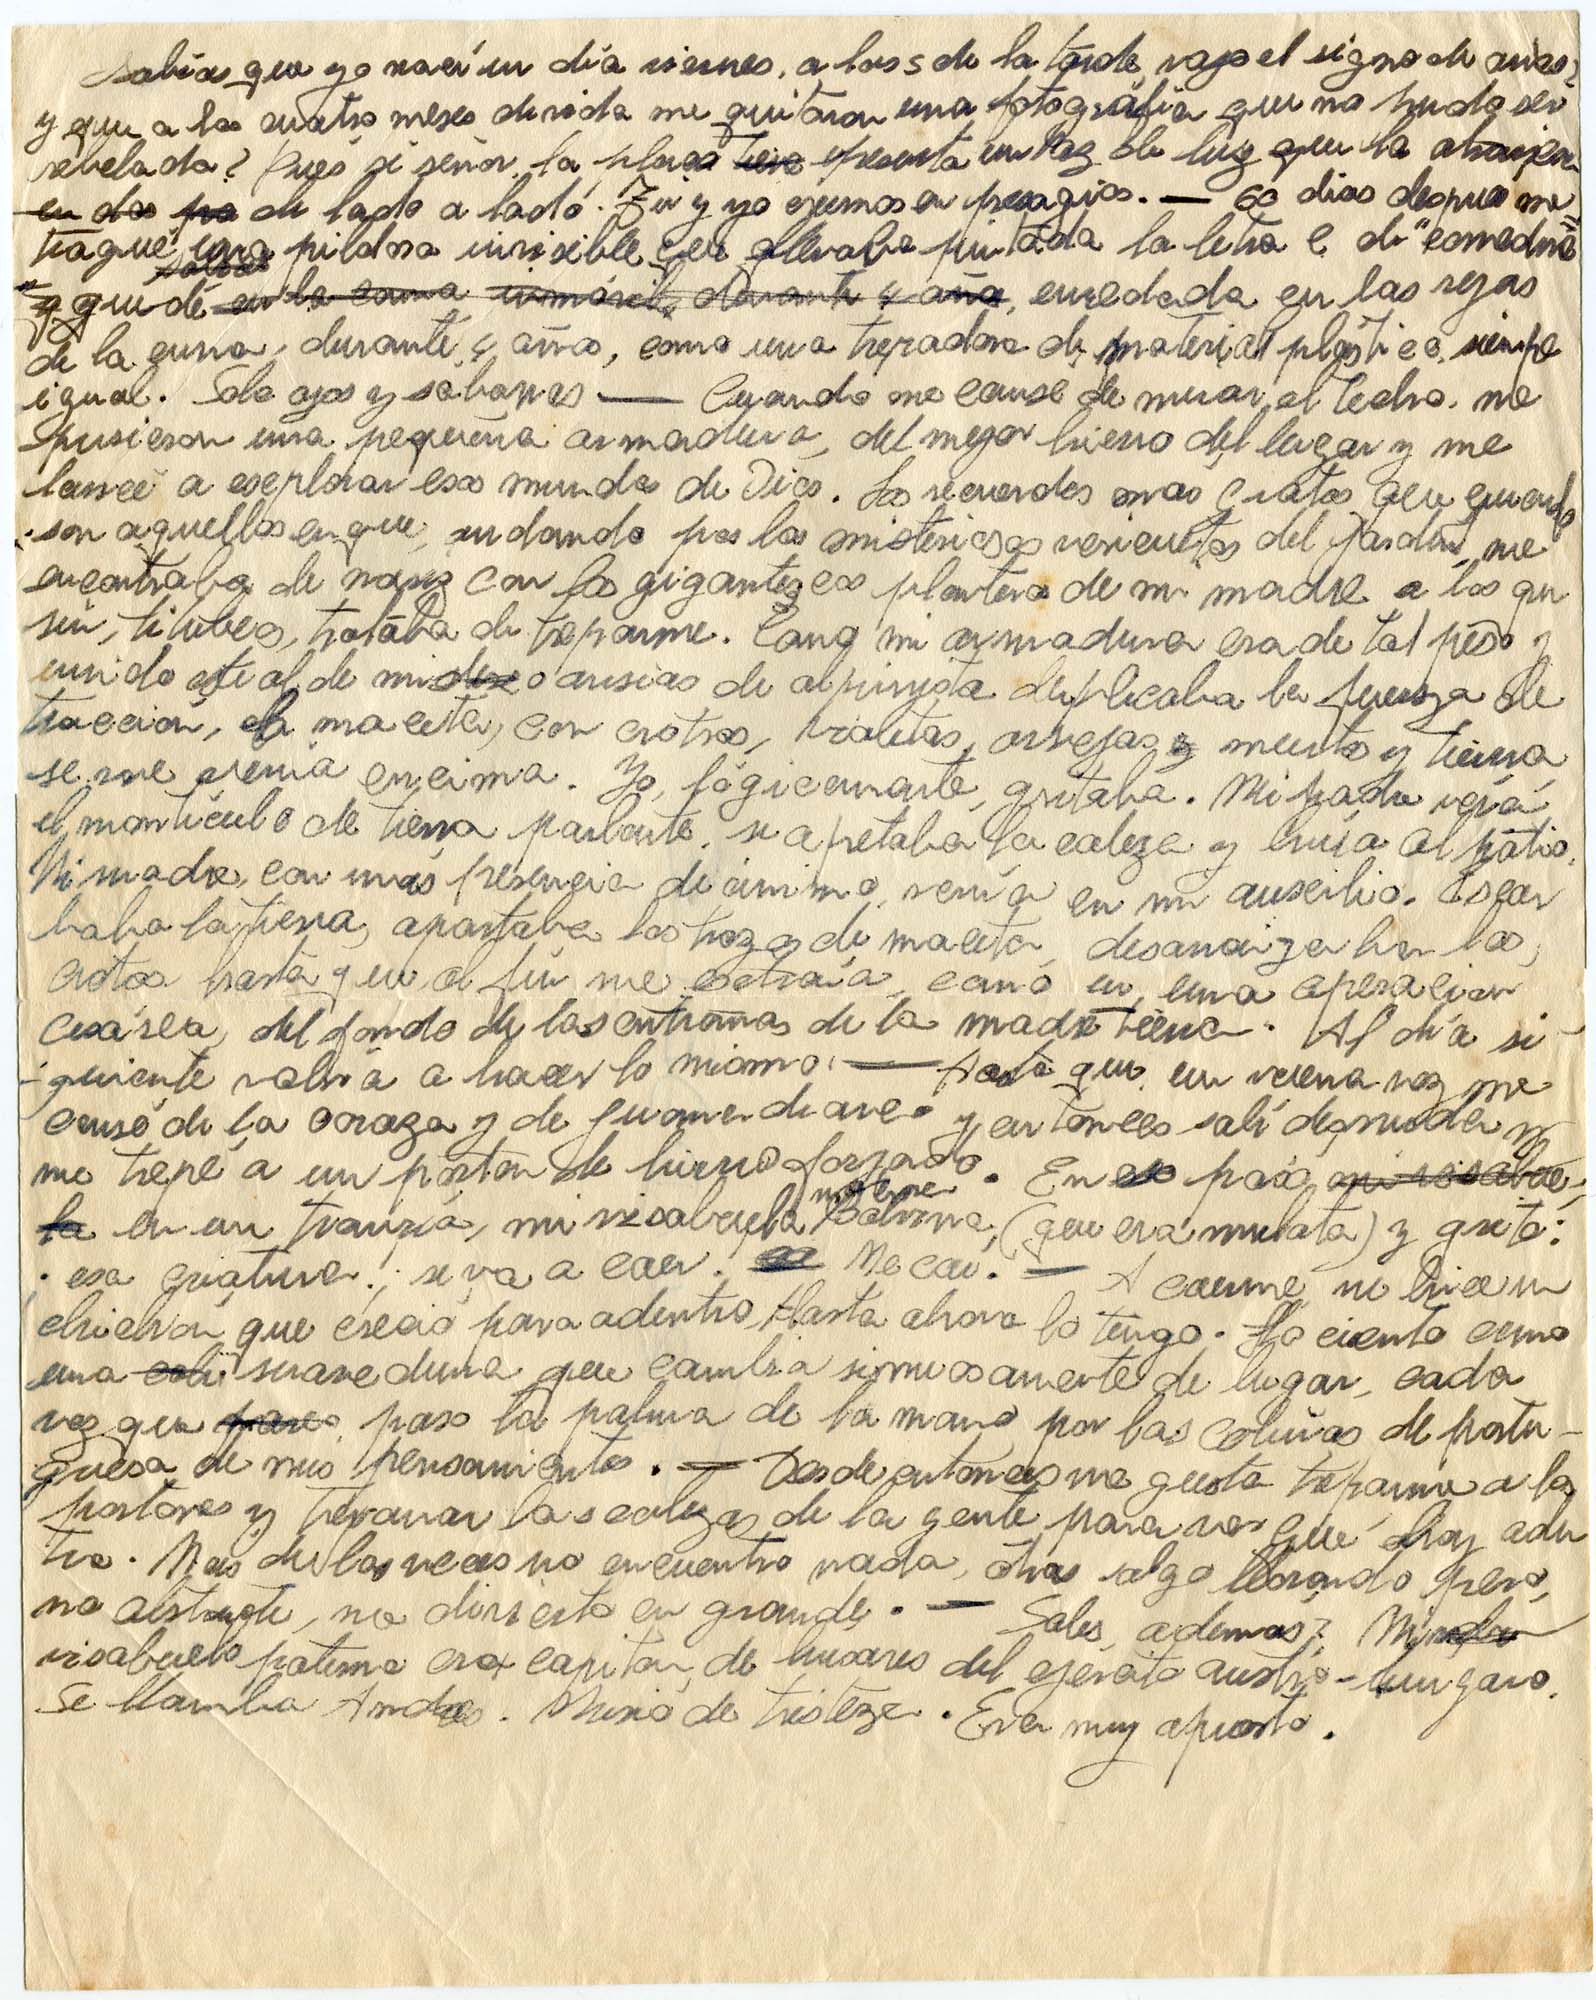 Sabías que yo nací un día viernes, a las 5 de la tarde, vajo el signo de aries?
y que a los cuatro meses de vida me quitaron una fotografía que no pudo ser
rebelada? Pues sí señor, la placa presenta un haz de luz que la
de lado a lado. Tú y yo creemos en presagios. — 60 días despues me
tragué una pildora invisible que llevaba pintada la letra C de "comedme"
y quedé enredada en las rejas
de la cuna, durante 4 años, como una trepadora de material plástico, siempre
igual. Solo ojos y sábanas — Cuando me cansé de mirar el techo, me
pusieron una pequeña armadura, del mejor hierro del lugar y me
lanceé a explorar esos mundos de Dios. Los recuerdos mas gratos que guardo
son aquellos en que, andando por los misteriosos vericuetos del jardín, me
encontraba de nariz con los gigantezcos planteros de mi madre a los que
sin titubeos, trataba de treparme. Como mi armadura era de tal peso y
unido este al de mis ansias de alpinista duplicaba la fuerza de
tracción, la maceta, con crotos, violetas, arvejas y menta y tierra
se me venía encima. Yo, lógicamente, gritaba. Mi padre veía
el montículo de tierra parlante, se apretaba la cabeza y huía al patio.
Mi madre, con más presencia de ánimo, venía en mi auxilio. Escar
baba la tierra, apartaba los trozos de maceta, desenraizaba los
crotos hasta que al fin me extraía, como en una operación
cesárea, del fondo de las entrañas de la madre tierra. Al día si-
guiente volvía a hacer lo mismo. — Hasta que, una vez me
cansé de la coraza y de y entonces salí desnuda y
me trepé a un portón de hierro forzado. En eso pasó
en un tranvía, mi visabuela materna Balvina, (que era mulata) y gritó:
¡esa criatura! ¡se va a caer. Me caí. — Al caerme me hice un
chichón que creció para adentro. Hasta ahora lo tengo. Lo ciento como
una suave duna que cambia sinuosamente de lugar, cada
vez que paso la palma de la mano por las colinas de portu-
guesa de mis pensamientos. — Desde entonces me gusta treparme a los
portones y trepanar las cabezas de la gente para ver que hay aden
tro. Mas de las veces no encuentro nada, otras algo llorando pero,
no obstante, me divierto en grande. — Sabes, ademas? Mi
visabuelo paterno era capitán de husares del ejército austro-hungaro.
Se llamba Andres. Murió de tristeza. Era muy apuesto.